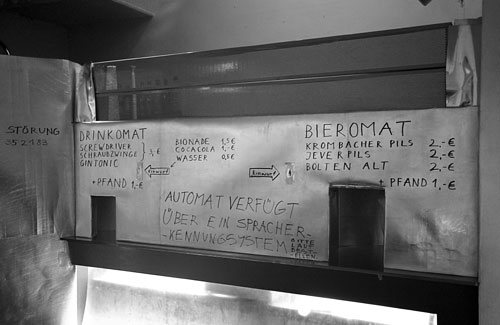 STÖRUNG
352133
DRINKOMAT
SCREWDRIVER
SCHRAUBZWINGE
GINTONIC
3,-€
+ PFAND 1,-€
EINWURF
BIONADE 1,5€
COCACOLA 1,-€
WASSER 0,5€
EINWURF
BIEROMAT
KROMBACHER PILS 2,-€
JEVER PILS 2,-€
BOLTEN ALT 2,-€
+ PFAND 1,-€
AUTOMAT VERFÜGT
ÜBER EIN SPRACHER-
-KENNUNGSSYSTEM
BITTE
LAUT